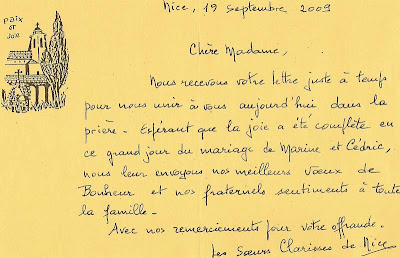 Nice, 19 Septembre 2009
PAIX
ET
JOIE
Chère Madame,
Nous recevons votre lettre juste à temps
pour nous unir à vous aujourd'hui dans la
prière - Espérant que la joie a été complète en
ce grand jour du mariage de Marine et Cédric,
nous leur envoyons nos meilleurs vœux de
Bonheur et nos fraternels sentiments à toute
la famille -
Avec nos remerciements pour votre offrande.
Les Sœurs Clarisses de Nice